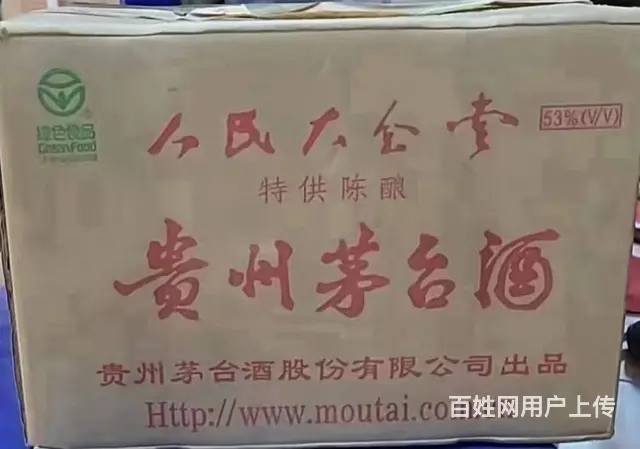 绿色食品
GreenFood
人民大会堂
53%(V/V)
特供陈酿
贵州茅台酒
贵州茅台酒股份有限公司出品
Http://www.moutai.com
百姓网用户上传